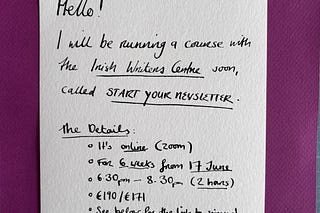 Hello!
I will be running a course with
the Irish Writers Centre soon,
called START YOUR NEWSLETTER.
The Details:
• It's online (zoom)
• For 6 weeks from 17 June
• 6.30pm - 8.30pm (2 hours)
• €190/€171
• See below for the link to